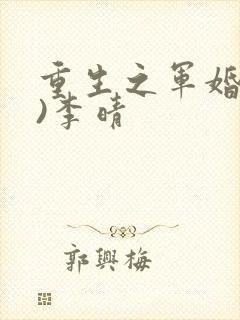 重生之军婚
)李晴
郭興梅